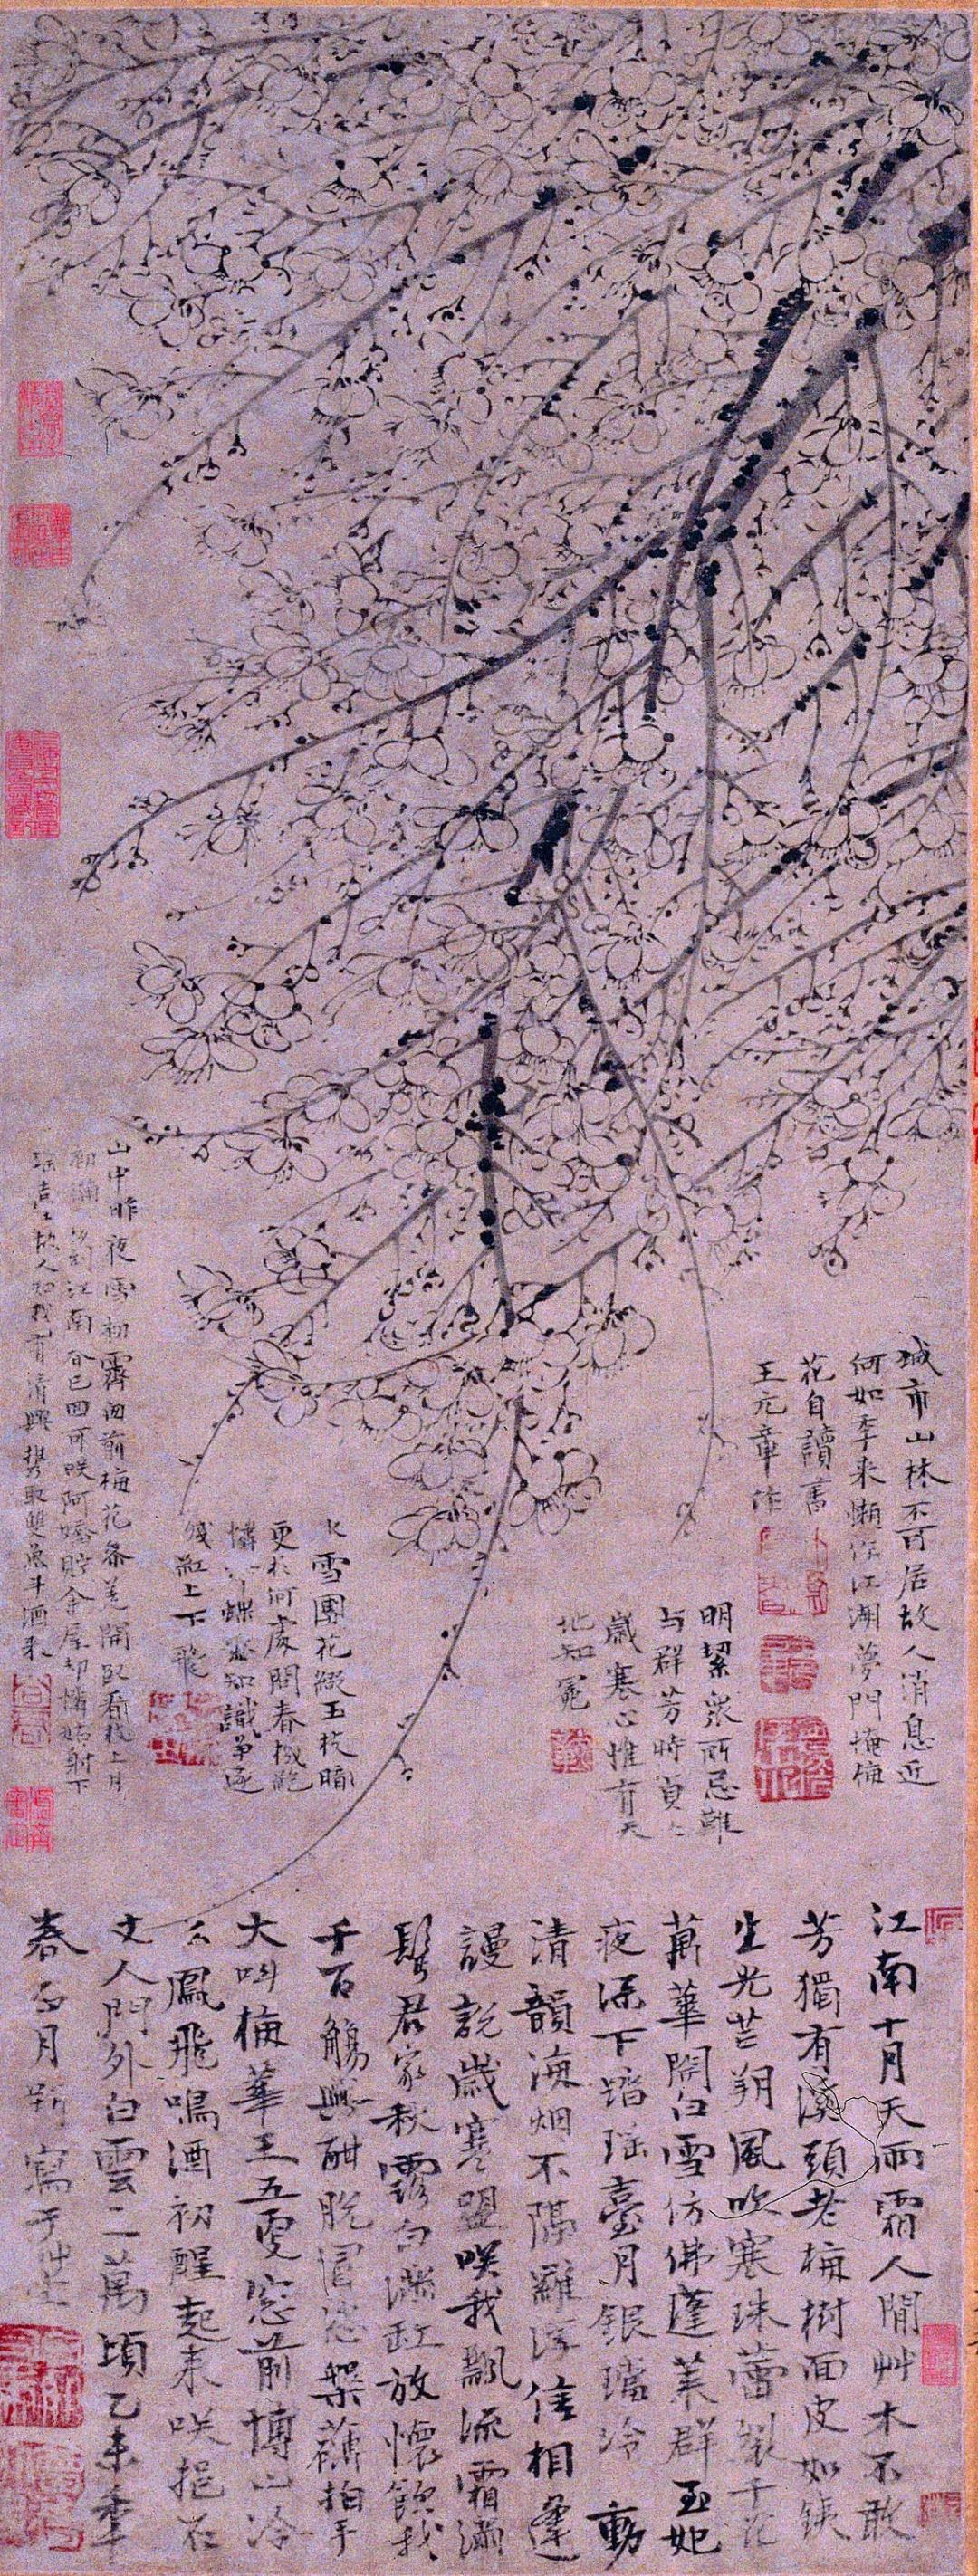 城市山林不可居故人消息近
何如年來懶作江湖夢門掩梅
花自讀書
王元章作
明絜衆所忌難
与群芳時貞〻
歲寒心惟有天
地知
雪團花綴玉枝
更於何處問春
憐蝶無知識爭逐
殘缸上下飛
山中昨夜雪初霽前梅花開看枝上月
江南春已回可咲阿嬌貯金屋却憐姑射下
瑤臺故人知我有清興携取雙魚斗酒來
江南十月天雨霜人閒艸木不敢
芳獨有溪頭老梅樹面皮如鐵
生光芒朔風吹寒珠蕾裂千花
萬華開白雪仿佛蓬萊群玉妃
夜深下踏瑤臺月銀璫泠動
清韻海烟不隔羅浮信相逢
謾說歲寒盟咲我飄流霜滿
鬢君家秋露白滿缸放懷飲我
千百觴興酣脫冒恣槃礴拍手
大叫梅華王五更窓前博山冷
幺鳳飛鳴酒初醒起來咲挹石
丈人門外白雲二萬頃乙未年
春正月朔寫于